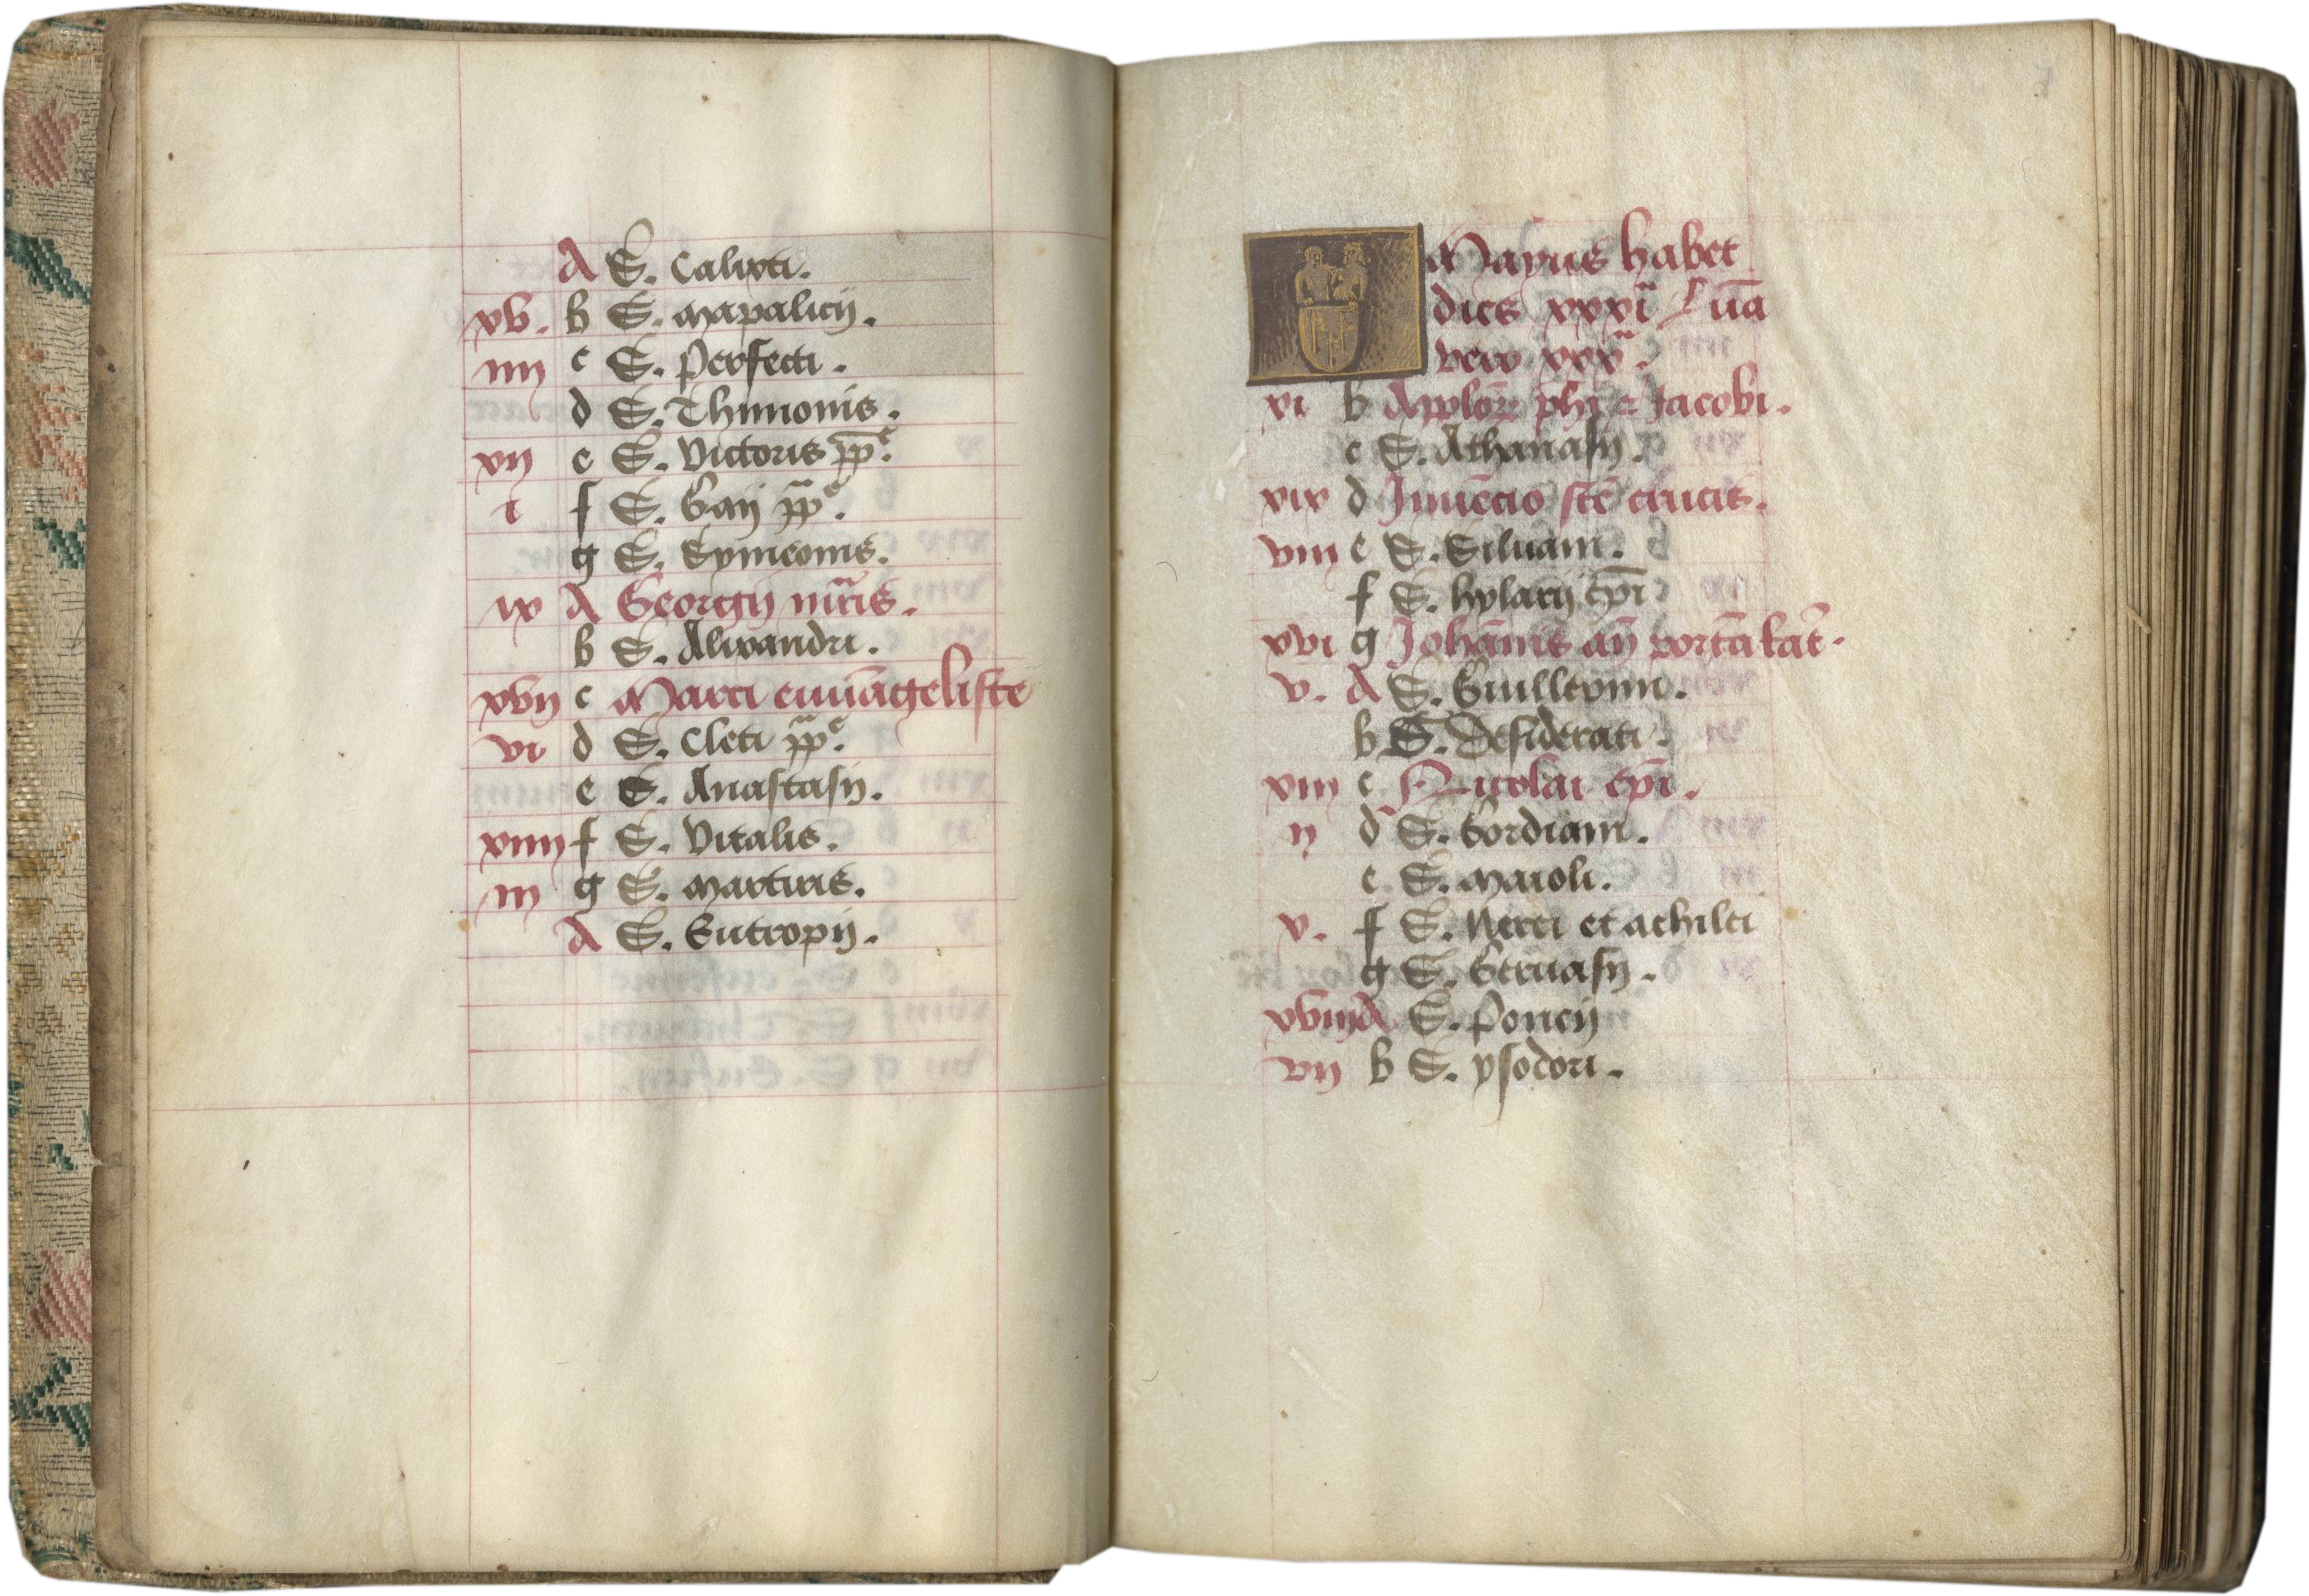 A S. Calixti.
xv. b S. mapalicij.
iiij c S. Perfecti.
d S. Thimonis.
vij e S. Victoris pp̄e.
i f S. Gaij pp̄e.
g S. Symeonis.
ix A Georgij mr̄is.
b S. Alixandri.
xvij c Marci euuāgeliste
vi d S. Cleti pp̄e.
e S. Anastasij.
xiiij f S. Vitalis.
iij g S. martiris.
A S. Eutropij.
Mayus habet
dies xxxi Luā
vero xxx.
xi b Applōꝝ phī ⁊ Jacobi.
c S. Athanasij.
xix d Inuēcio stē crucis.
viii e S. Siluani.
f S. hylarij ep̄i
xvi g Johānis an̄ portā lat̄.
v. A S. Guillermi.
b S. Desiderati.
xiii c Nicolai ep̄i.
ij d S. Gordiani.
e S. maioli.
v. f S. Nerei et achilei
g S. Geruasij.
xviij A S. Poncij
vij b S. ysodori.